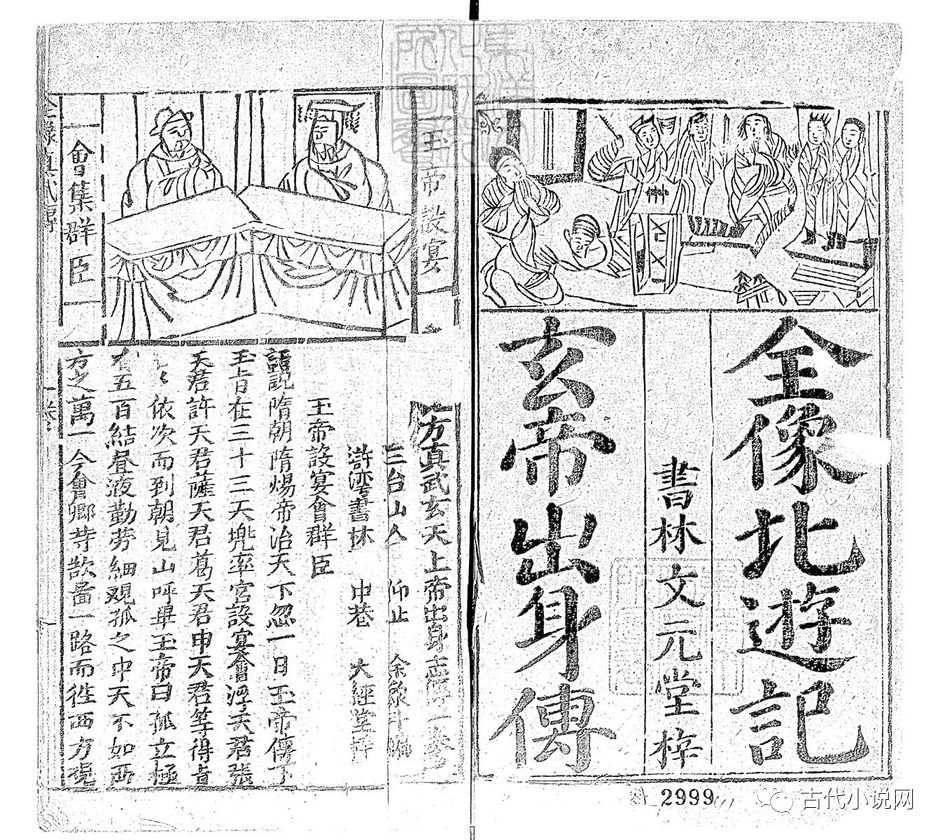 全像北遊記
書林文元堂梓
玄帝出身傳
玉帝設宴
會集群臣
方真武玄天上帝出身志傳一卷
三台山人 仰止 余象斗編
滸灣書林 中巷 大經堂梓
玉帝設宴會群臣
話說隋朝隋煬帝治天下忽一日玉帝傳下
玉旨在三十三天兜率宮設宴會浮天君張
天君許天君薩天君葛天君申天君等得旨
依次而到朝見山呼畢玉帝曰孤立極
五百結昼夜勤劳細观孤之中天不如西
方之萬一今會卿等欲啚一路而徃西方观
2999
古代小说网